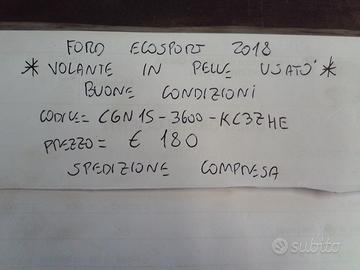 FORD ECOSPORT 2018
* VOLANTE IN PELLE USATO *
BUONE CONDIZIONI
CODICE= CGN15-3600-KC3ZHE
PREZZO= € 180
SPEDIZIONE COMPRESA
subito